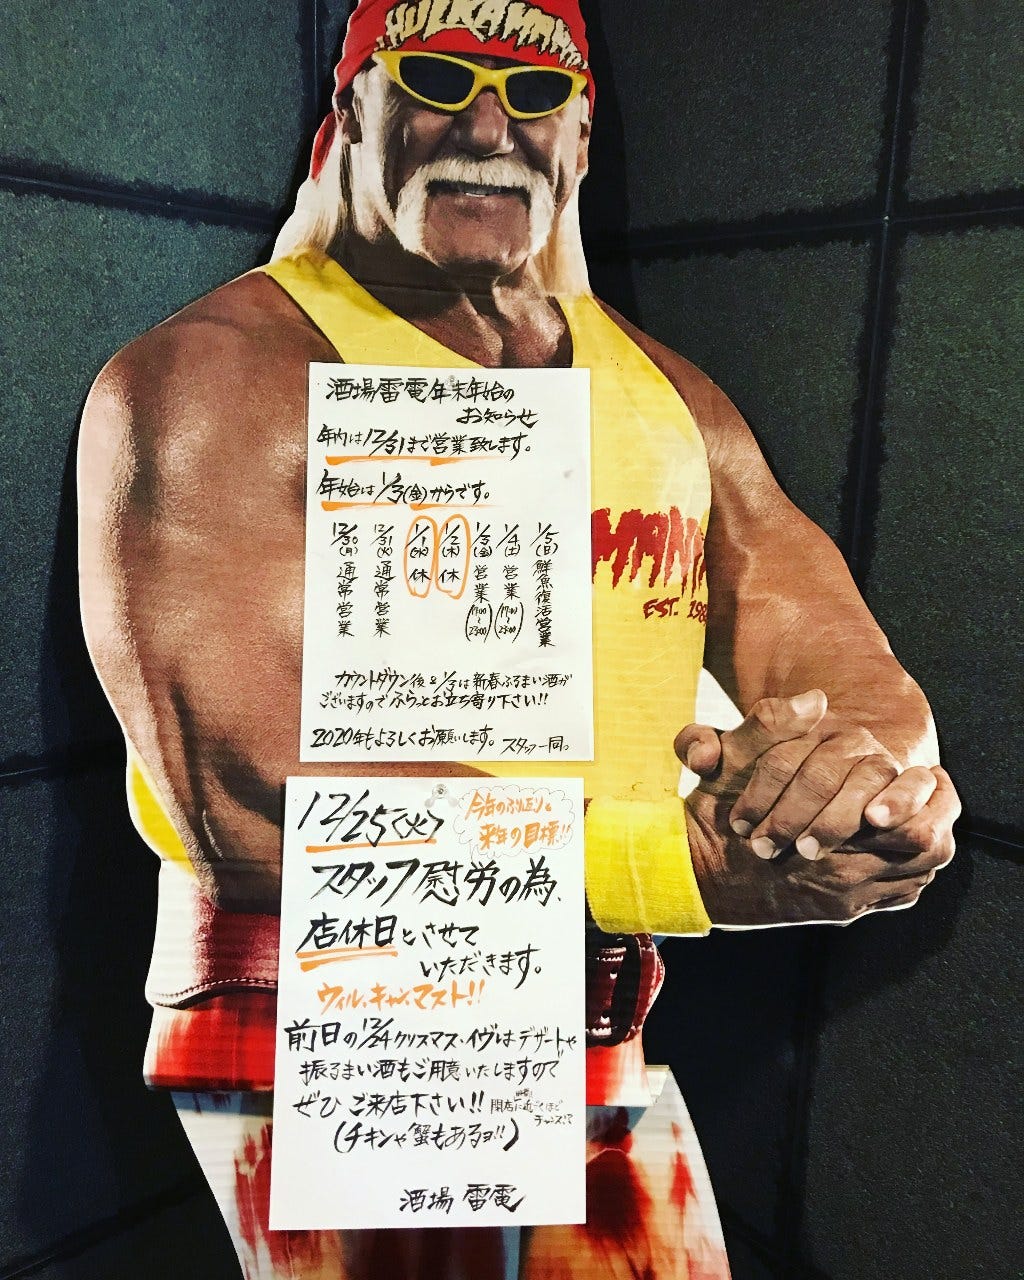 HULKAMANIA
酒場雷電年末年始の
お知らせ
年内は12/31まで営業致します。
年始は1/3(金)からです。
12/30(月)通常営業
12/31(火)通常営業
1/1(水)休
1/2(木)休
1/3(金)営業(17:00~23:00)
1/4(土)営業(17:00~23:00)
1/5(日)鮮魚復活営業
カウントダウン後&1/3は新春ふるまい酒が
ございますのでふらっとお立ち寄り下さい!!
2020年もよろしくお願いします。スタッフ一同。
MANIA
EST. 198
12/25<火>
今年のふり返りと
来年の目標!!
スタッフ慰労の為、
店休日とさせて
いただきます。
ウィル、キャン、マスト!!
前日の12/24クリスマス・イヴはデザートや
振るまい酒もご用意いたしますので
ぜひご来店下さい!!
開店に近いほど
チャンス!?
(チキンや蟹もあるヨ!!)
酒場 雷電